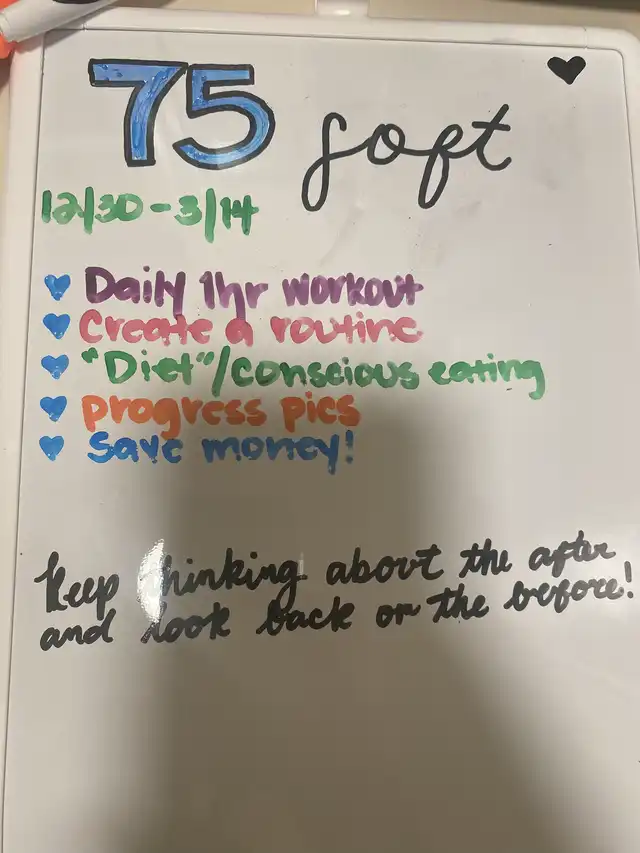 75 soft
12/30-3/14
Daily 1hr workout
Create a routine
"Diet"/conscious eating
progress pics
save money!
Keep thinking about the after
and look back on the before!